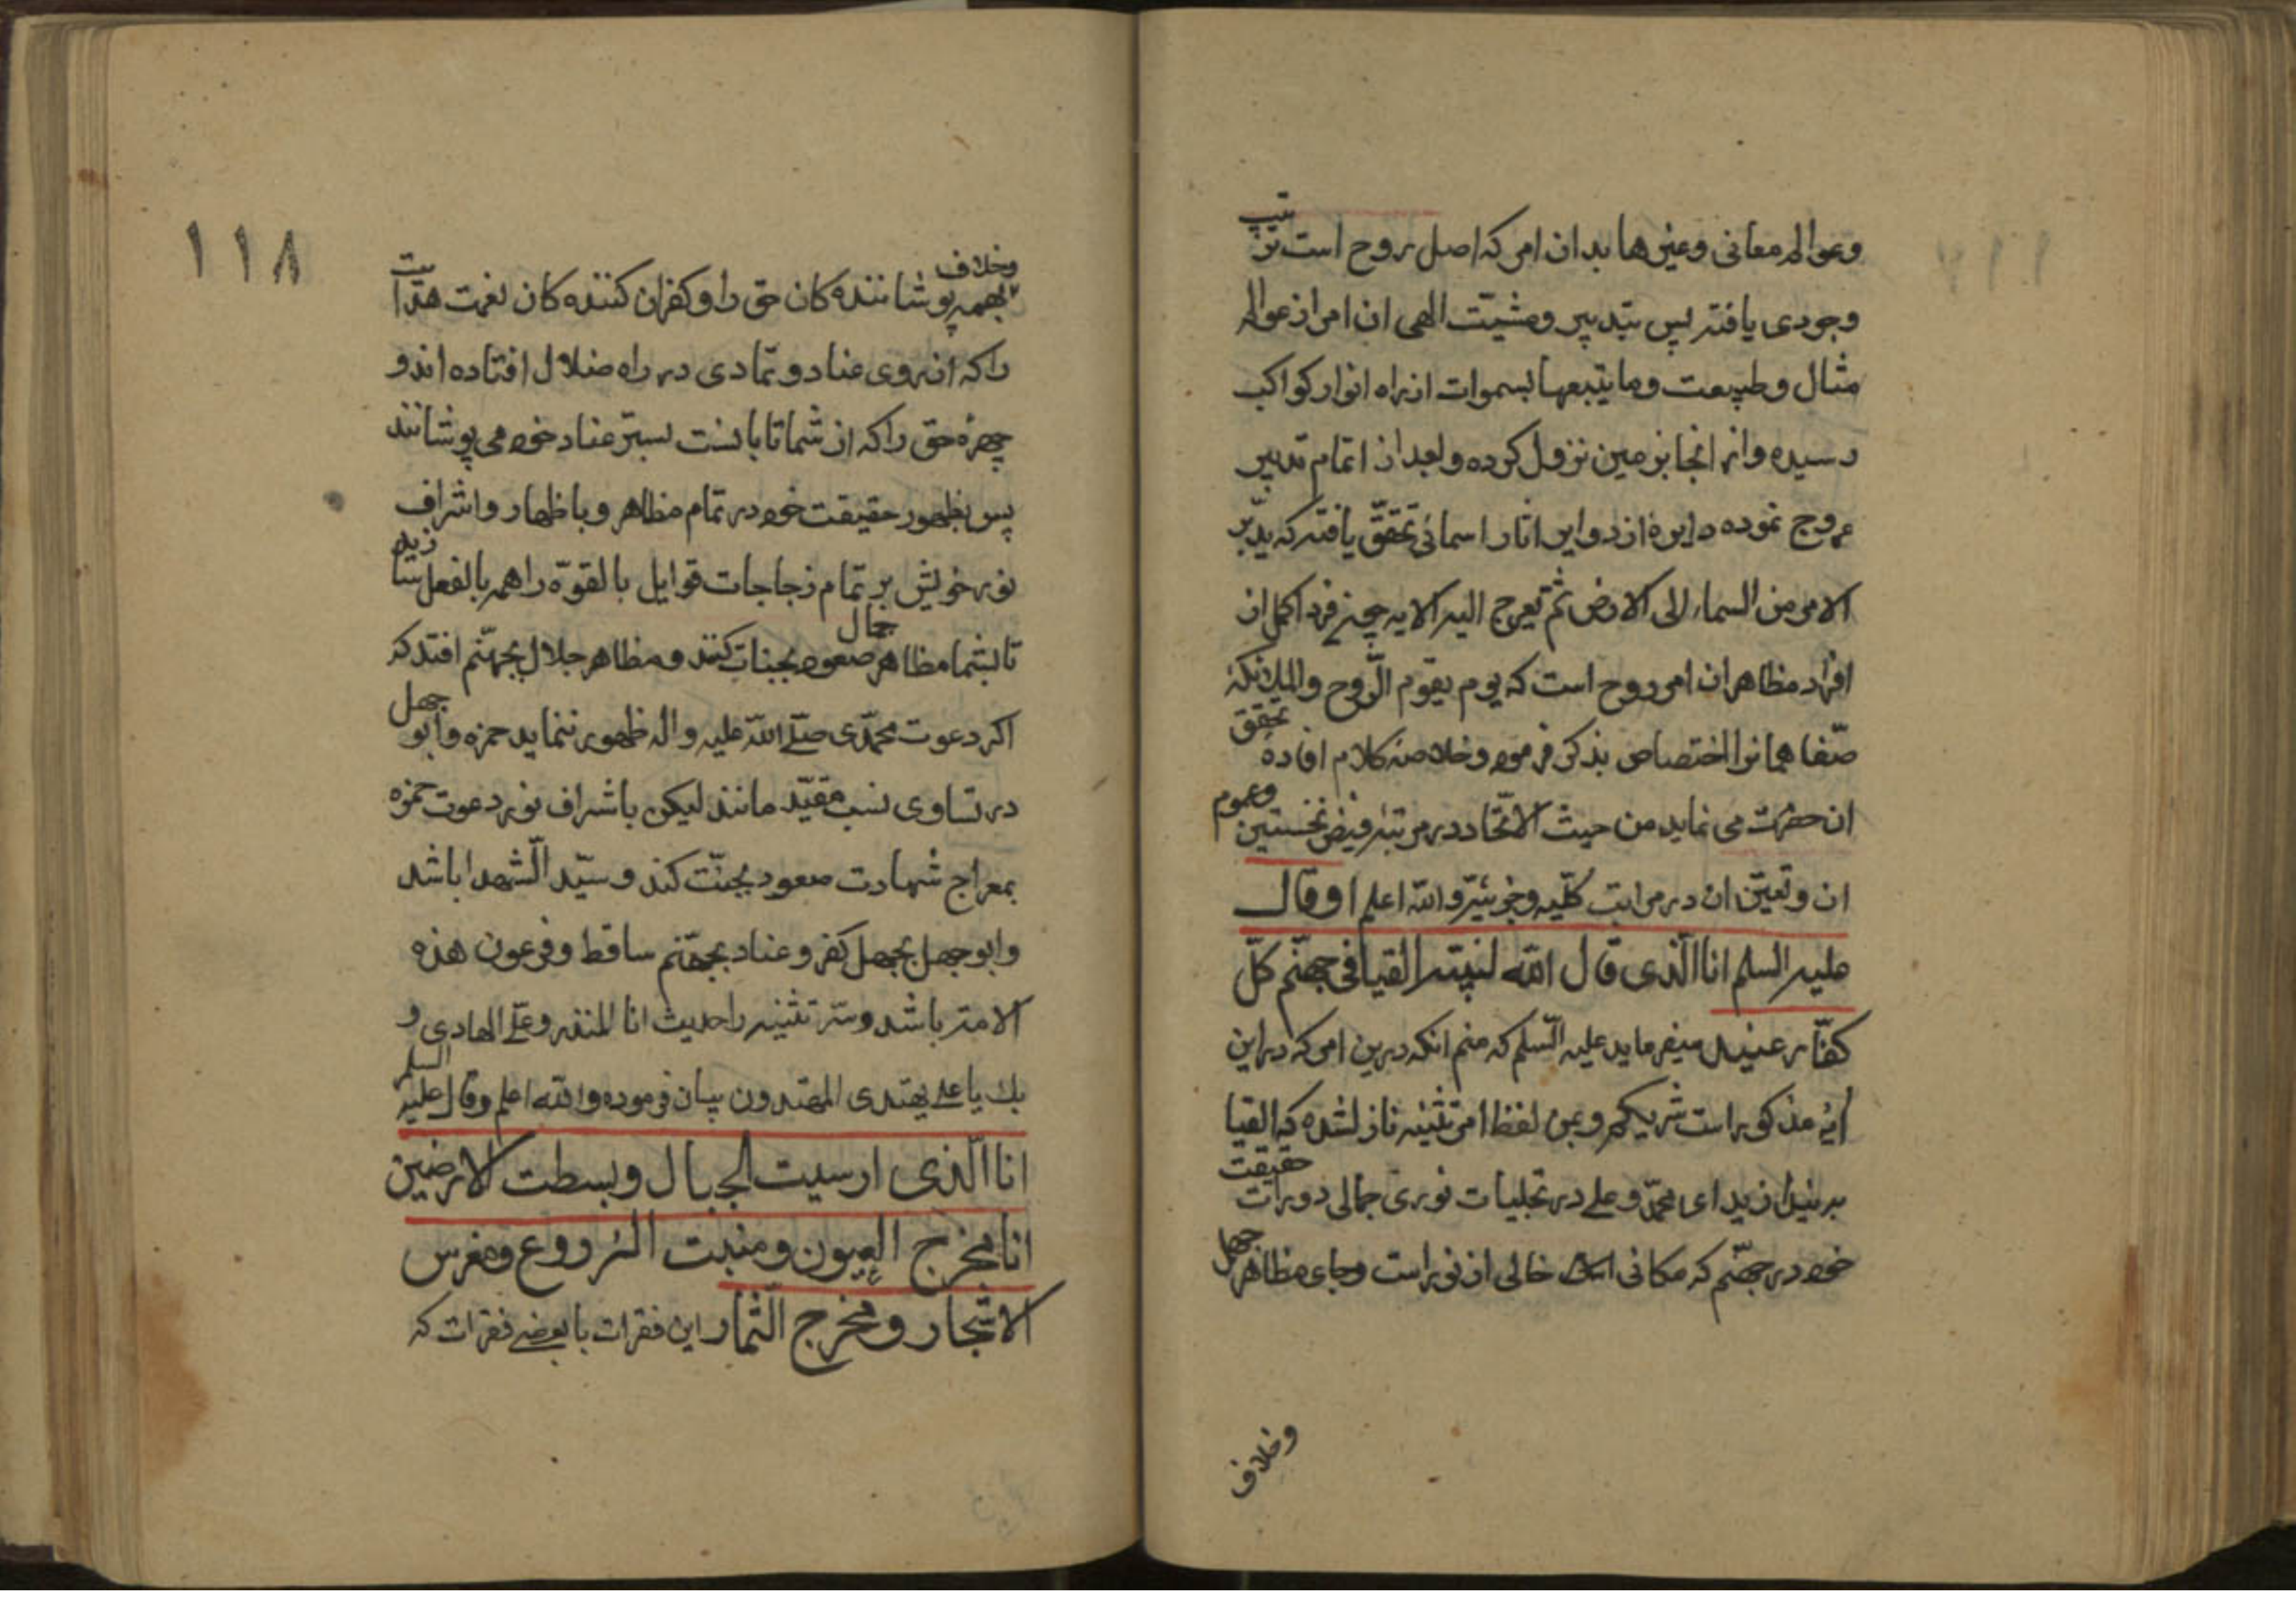 وعوالم معانی وغیرها بدان امر که اصل روح است ترتیب
وجودی یافته پس بتدبیر ومشیّت الهی ان امر از عوالم
مثال وطبیعت وما یتبعها بسموات از راه انوار کواکب
رسیده واز انجا بزمین نزول کرده وبعد از اتمام تدبیر
عروج نموده دایرهٔ از دوایر اثار اسمائی تحقّق یافته که یدبّر
الامر من السماء الی الارض ثم یعرج الیه الایه چه فرد اکمل ان
افراد مظاهر ان امر روح است که یوم یقوم الرّوح والملائکة
صفّا همانرا اختصاص بذکر فرمود وخلاصهٔ کلام افادهٔ تحقق
ان حضرت می نماید من حیث الاتّحاد در مرتبهٔ فیض نخستین وعموم
ان وتعیّن ان در مراتب کلّیه وجزئیّه والله اعلم وقال
علیه السلم انا الّذی قال الله لنبیّه القیا فی جهنّم کلّ
کفّار عنید میفرماید علیه السّلم که منم انکه درین امر که در این
ایهٔ مذکور است شریکم وبمن لفظ امر تثنیه نازل شده که القیا
برنیدازید ای محمّد وعلی در تجلیات نوری جمالی دورات حقیقت
خود در جهنّم که مکانی است خالی از نور است وجای مظاهر جهل
وخلاف
١١٨
وخلاف
بهمه پوشاننده کان حق را وکفران کننده کان نعمت هدایت
را که از روی عناد وتمادی در راه ضلال افتاده اند و
چهرهٔ حق را که از شما تابانست بستر عناد خود می پوشانند
پس بظهور حقیقت خود در تمام مظاهر وباظهار واشراف
نور خویش بر تمام زجاجات قوابل بالقوّه را همه بالفعل سازید
تا بشما مظاهر جمال صعود بجنات کنند ومظاهر جلال بجهنّم افتد که
اکر دعوت محمّدی صلّی الله علیه واله ظهور ننماید حمزه وابو جهل
در تساوی نسب مقیّد مانند لیکن باشراف نور دعوت حمزه
بمعراج شهادت صعود بجنّت کند وسیّد الشّهدا باشد
وابو جهل بجهل کفر وعناد بجهنّم ساقط وفرعون هذه
الامّة باشد وسّر تثنیه را حدیث انا المنذر وعلیّ الهادی و
بك یا علی یهتدی المهتدون بیان فرموده والله اعلم وقال علیه السلم
انا الّذی ارسیت الجبال وبسطت الارضین
انا مخرج العیون ومنبت الزروع ومغرس
الاشجار ومخرج الثّمار این فقرات با بعضی فقرات که